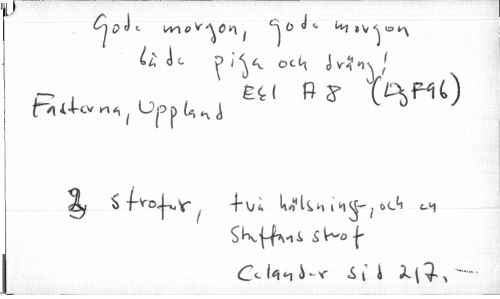 Gode morgon, gode morgon
både piga och dräng!
E&I A 8 (Lg F96)
Fasterna, Uppland
2 strofer, två hälsnings-, och en
Staffans strof
Celander sid 217.